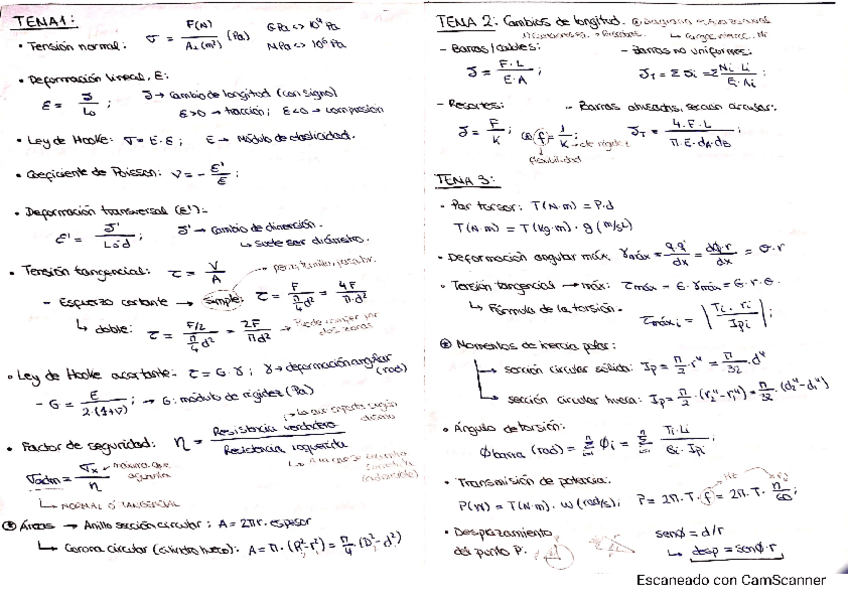 TEMA 1:
• Tensión normal: σ = F(N) / A⊥(m²) (Pa) GPa <> 10⁹ Pa
MPa <> 10⁶ Pa
• Deformación lineal, E:
ε = δ / L₀ ; δ → cambio de longitud (con signo)
ε>0 → tracción; ε<0 → compresion
• Ley de Hooke: σ = E·ε ; E → Módulo de elasticidad.
• Coeficiente de Poisson: ν = - ε' / ε ;
• Deformación transversal (ε'):
ε' = δ' / L₀ ó d ; δ' → cambio de dimensión.
↳ suele ser diámetro.
• Tensión tangencial: τ = V / A
- Esfuerzo cortante → simple: τ = F / (π/4 d²) = 4F / π·d²
↳ doble: τ = F/2 / (π/4 d²) = 2F / πd² → Puede romper por dos zonas
• Ley de Hooke a cortante: τ = G·γ ; γ → deformación angular (rad)
- G = E / 2·(1+ν) ; → G: módulo de rigidez (Pa)
• Factor de seguridad: η = Resistencia verdadera / Resistencia requerida
→ La que soporta según diseño
σadm = σx / η → máxima que aguanta
↳ NORMAL Ó TANGENCIAL
⊛ Áreas → Anillo sección circular: A = 2πr·espesor
↳ Corona circular (cilindro hueco): A = π·(R²-r²) = π/4·(D²-d²)
TEMA 2: Cambios de longitud.
- Barras/cables:
δ = F·L / E·A ;
- Barras no uniformes:
δT = Σ δi = Σ Ni·Li / E·Ai ;
- Resortes:
δ = F / K ; f = 1 / K → cte rigidez
flexibilidad
- Barras ahusadas, sección circular:
δT = 4·F·L / π·E·dA·dB ;
TEMA 3:
• Par torsor: T(N·m) = P·d
T(N·m) = T(Kg·m) · g (m/s²)
• Deformación angular máx. γmáx = q·q' / dx = dφ·r / dx = θ·r
• Torsión tangencial → máx: τmáx = G·γmáx = G·r·θ.
↳ Fórmula de la torsión. τmáx i = | Ti·ri / Ipi | ;
⊛ Momentos de inercia polar:
→ sección circular sólida: Ip = π/2·r⁴ = π/32·d⁴
→ sección circular hueca: Ip = π/2·(r₂⁴-r₁⁴) = π/32·(d₂⁴-d₁⁴)
• Ángulo de torsión:
φbarra (rad) = Σ φi = Σ Ti·Li / Gi·Ipi
• Transmisión de potencia:
P(W) = T(N·m)·ω(rad/s); P = 2π·T·f = 2π·T·n/60 ;
• Desplazamiento
del punto P:
senφ = d/r
↳ desp = senφ·r
Escaneado con CamScanner